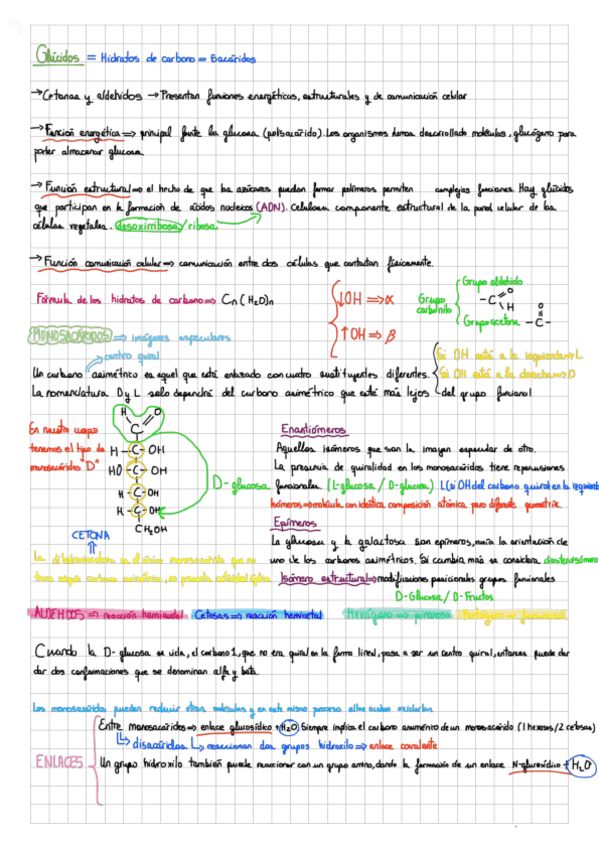 Glúcidos = Hidratos de carbono = Sacáridos
→ Cetonas y aldehídos → Presentan funciones energéticas, estructurales y de comunicación celular
→ Función energética ⇒ principal fuente la glucosa (polisacárido). Los organismos hemos desarrollado moléculas, glucógeno para
poder almacenar glucosa.
→ Función estructural ⇒ el hecho de que los azúcares puedan formar polímeros permiten complejas funciones. Hay glúcidos
que participan en la formación de ácidos nucleicos (ADN). Celulosa componente estructural de la pared celular de las
células vegetales. desoxirribosa/ribosa
→ Función comunicación celular ⇒ comunicación entre dos células que contactan físicamente.
Fórmula de los hidratos de carbono ⇒ Cn(H2O)n
↓OH ⇒ α
↑OH ⇒ β
Grupo carbonilo
Grupo aldehído
-C
O
H
Grupo cetona
O
-C-
MONOSACÁRIDOS ⇒ imágenes especulares
centro quiral
Un carbono asimétrico es aquel que está enlazado con cuatro sustituyentes diferentes.
Si OH está a la izquierda ⇒ L
Si OH está a la derecha ⇒ D
La nomenclatura D y L solo dependrá del carbono asimétrico que esté más lejos del grupo funcional
En nuestro cuerpo
tenemos el tipo de
monosacáridos "D"
H O
C
H - C - OH
HO - C - OH
H - C - OH
H - C - OH
CH2OH
D-glucosa
CETONA
Enantiómeros
Aquellos isómeros que son la imagen especular de otro.
La presencia de quiralidad en los monosacáridos tiene repercusiones
funcionales (L-glucosa / D-glucosa) L (si OH del carbono quiral en la izquierda
Isómeros ⇒ molécula con idéntica composición atómica, pero diferente geometría.
Epímeros
La glucosa y la galactosa son epímeros, varía la orientación de
uno de los carbonos asimétricos. Si cambia más se considera diastereoisómero
La dihidroxiacetona es el único monosacárido que no
tiene ningún carbono asimétrico, no presenta actividad óptica
Isómero estructural ⇒ modificaciones posicionales grupos funcionales
D-Glucosa / D-Fructosa
ALDEHÍDOS ⇒ reacción hemiacetal Cetosas ⇒ reacción hemicetal Hexágono ⇒ piranosa Pentágono ⇒ furanosa
Cuando la D-glucosa se cicla, el carbono 1, que no era quiral en la forma lineal, pasa a ser un centro quiral, entonces puede dar
dar dos conformaciones que se denominan alfa y beta.
Los monosacáridos pueden reducir otras moléculas y en este mismo proceso ellos acaban oxidados
ENLACES
Entre monosacáridos ⇒ enlace glucosídico + H2O Siempre implica el carbono anomérico de un monosacárido (1 hexosas/2 cetosas)
disacáridos reaccionan dos grupos hidroxilo ⇒ enlace covalente
Un grupo hidroxilo también puede reaccionar con un grupo amino, dando la formación de un enlace N-glucosídico + H2O